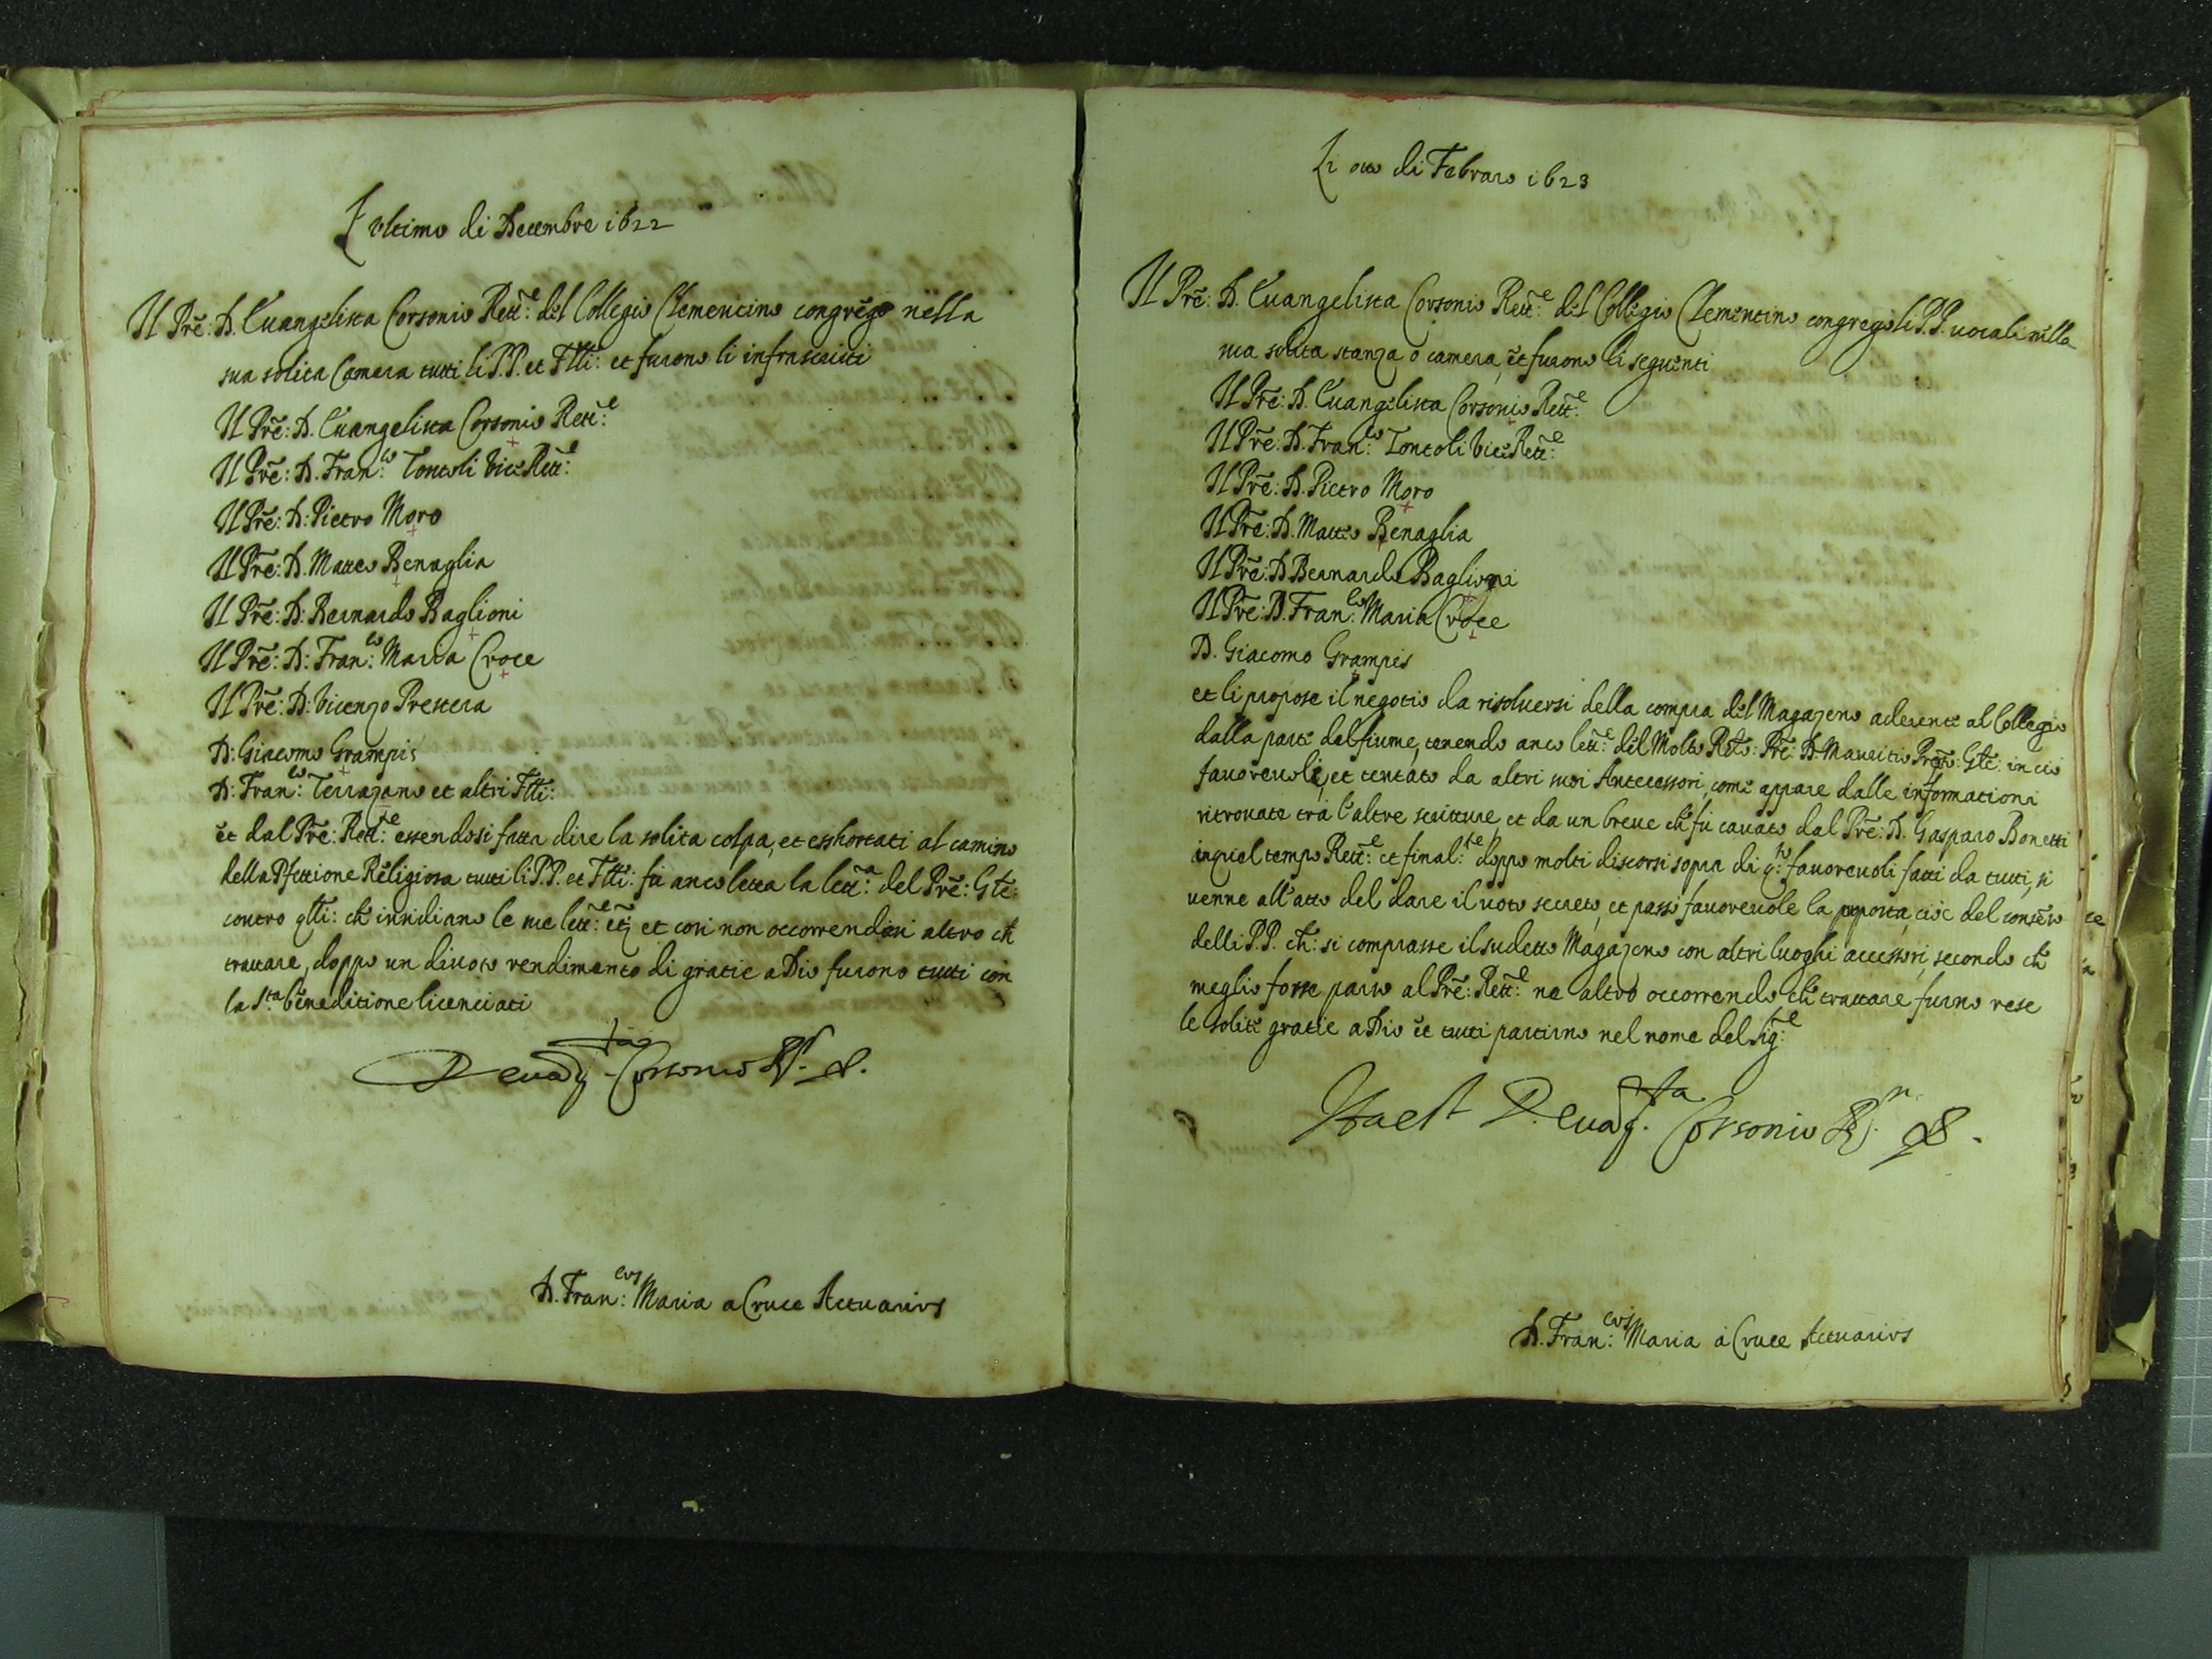 L'vltimo di Decembre 1622
Il Pre: D. Euangelista Corsonio Rett:e del Collegio Clementino congregò nella
sua solita Camera tutti li P.P. et Flli: et furono li infrascritti
Il Pre: D. Euangelista Corsonio Rett:e
Il Pre: D. Fran:co Tontoli Vice Rett:e
Il Pre: D: Pietro Moro
Il Pre: D. Matteo Benaglia
Il Pre: D: Bernardo Baglioni
Il Pre: D: Fran:co Maria Croce
Il Pre: D: Vicenzo Prestera
D: Giacomo Grampis
D: Fran:co Terrazano et altri Flli:
et dal Pre: Rett:e essendosi fatta dire la solita colpa, et esshortati al camino
della Pfettione Religiosa tutti li P.P. et Flli: fù anco letta la lett:a del Pre: Gle:
contro qlli: ch' insidiano le sue lett:e et così non occorrendosi altro ch'
trattare, doppo un diuoto rendimento di gratie a Dio furono tutti con
la S.ta beneditione licenciati
D euag.sta Corsonio R.r
D. Fran:cus Maria a Cruce Actuarius
Li otto di Febraro 1623
Il Pre: D. Euangelista Corsonio Rett:e del Collegio Clementino congregò li P.P. uocali nella
sua solita stanza o camera, et furono li seguenti
Il Pre: D. Euangelista Corsonio Rett:e
Il Pre: D. Fran:co Tontoli Vice Rett:e
Il Pre: D. Pietro Moro
Il Pre: D. Matteo Benaglia
Il Pre: D Bernardo Baglioni
Il Pre: D. Fran:co Maria Croce
D. Giacomo Grampis
et li propose il negotio da risoluersi della compra del Magazeno aderente al Collegio
dalla parte del fiume, tenendo anco lett:e del Molto Rdo: Pre: D. Mauritio Gle: in ciò
fauoreuoli, et tentato da altri suoi Antecessori, come appare dalle informationi
ritrouate trà l'altre scritture, et da un breue ch' fù cauato dal Pre: D. Gasparo Bonetti
in quel tempo Rett:e et final:te doppo molti discorsi sopra di q:to fauoreuoli fatti da tutti, si
uenne all'atto del dare il uoto secreto, et passò fauoreuole la pposta, cioè del consenso
delli P.P. ch': si comprasse il sudetto Magazeno con altri luoghi accessori, secondo ch'
meglio fosse parso al Pre: Rett:e ne altro occorrendo ch' trattare furno rese
le solite gratie a Dio et tutti partirno nel nome del Sig:e
Ita est D. euag.sta Corsonio R.r
D. Fran:cus Maria à Cruce Actuarius